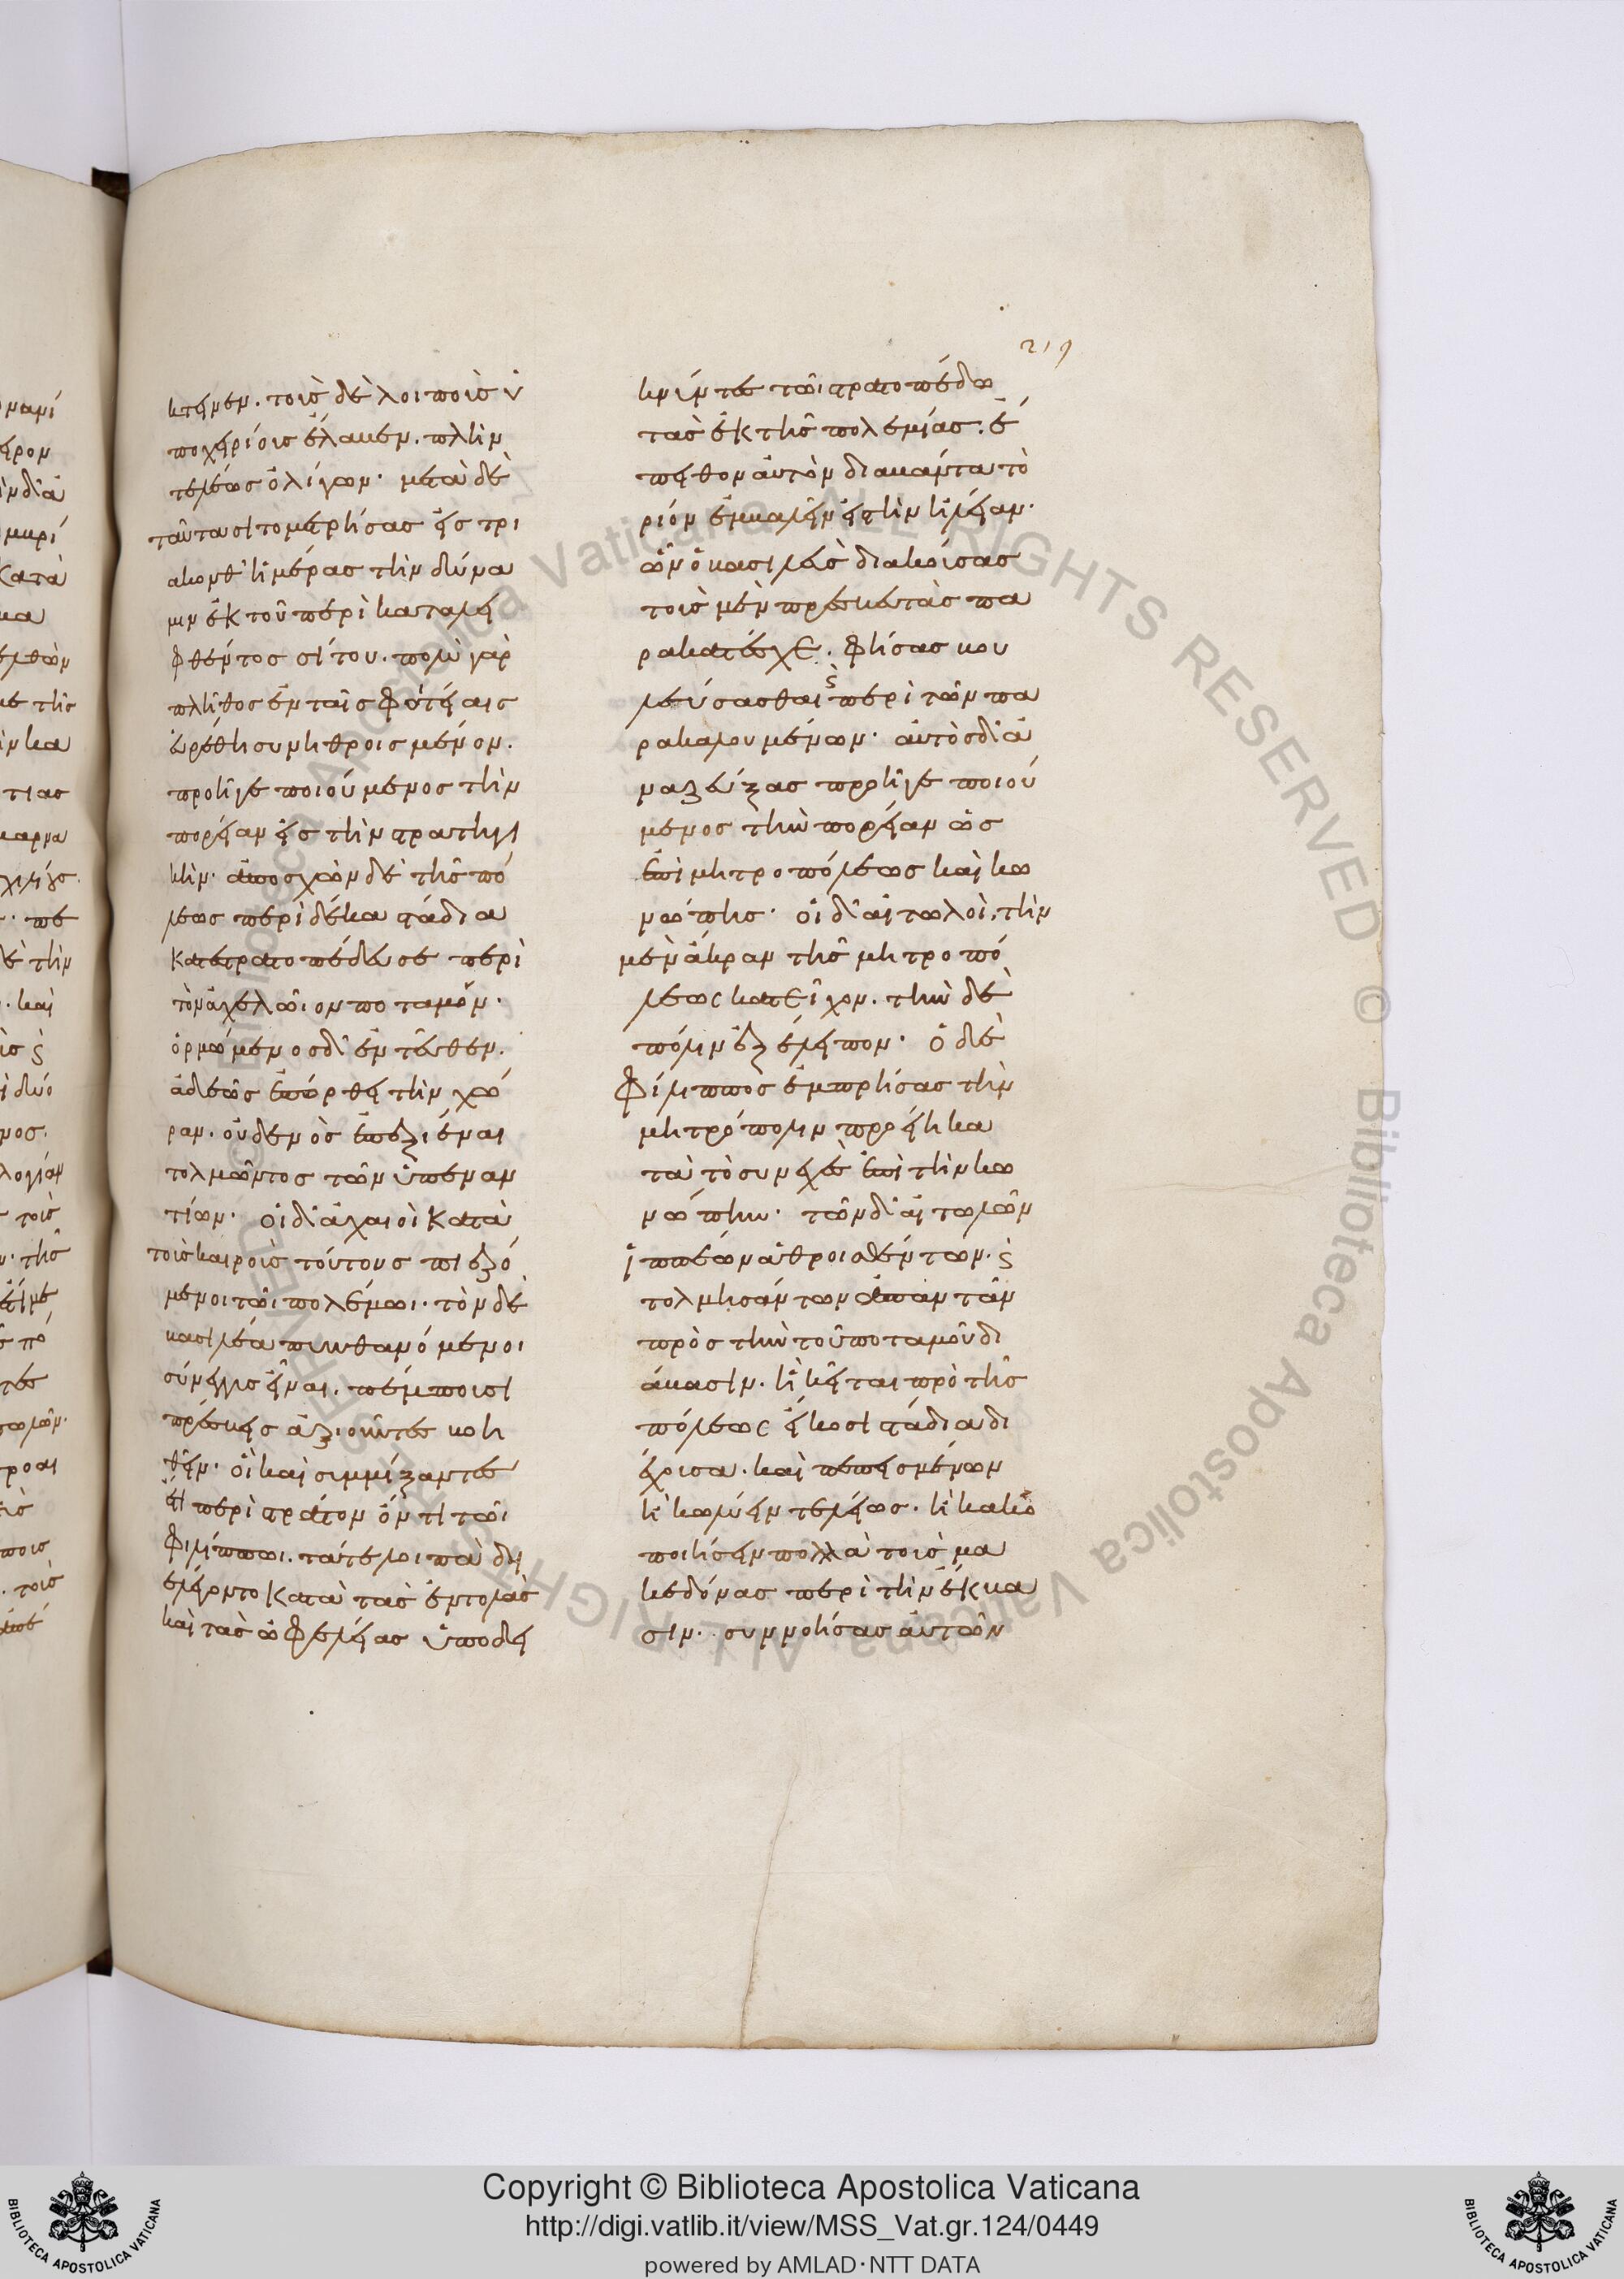 κτεινεν. τοῖς δὲ λοιποῖς ὑ
ποχειρίοις ἔλαβεν. πλὴν
τελέως ὀλίγων· μετὰ δὲ
ταῦτα σιτομετρήσας εἰς τρι
ακονθ' ἡμέρας τὴν δύνα
μιν ἐκ τοῦ περὶ καταλει
φθέντος σίτου. πολὺ γὰρ
πλῆθος ἐν ταῖς φυτείαις
εὑρέθη συνηθροισμένον.
προῆγε ποιούμενος τὴν
πορείαν εἰς τὴν στρατηγι
κὴν· ἀποσχὼν δὲ τῆς πό
λεως περὶ δέκα στάδια
κατεστρατοπέδευσε περὶ
τὸν ἀχελῶιον ποταμόν·
ὁρμώμενος δ' ἐντεῦθεν.
ἀδεῶς ἐπόρθει τὴν χώ
ραν. οὐδενὸς ἐπεξιέναι
τολμῶντος τῶν ὑπεναν
τίων· οἱ δ' ἀχαιοὶ κατὰ
τοὺς καιροὺς τούτους πιεζό
μενοι τῶι πολέμωι. τὸν δὲ
βασιλέα πυνθανόμενοι
σύνεγγυς εἶναι. πέμπουσι
πρέσβεις ἀξιοῦντες βοη
θεῖν. οἳ καὶ συμμίξαντες
ἔτι περὶ στράτον ὄντι τῶι
φιλίππωι. τά τε λοιπὰ δι
ελέγοντο κατὰ τὰς ἐντολὰς
καὶ τὰς ὠφελείας ὑποδει
κνύντες τῶι στρατοπέδω
τὰς ἐκ τῆς πολεμίας. ἔ
πειθον αὐτὸν διαβάντα τὸ
ρίον ἐμβαλεῖν εἰς τὴν ἠλείαν·
ὧν ὁ βασιλεὺς διακούσας
τοὺς μὲν πρεσβευτὰς πα
ρακατέσχε. φήσας βου
λεύσασθαι περὶ τῶν πα
ρακαλουμένων· αὐτὸς δ' ἀ
ναζεύξας προῆγε ποιού
μενος τὴν πορείαν ὡς
ἐπὶ μητροπόλεως καὶ κω
νώπης· οἱ δ' αἰτωλοὶ. τὴν
μὲν ἄκραν τῆς μητροπό
λεως κατεῖχον. τὴν δὲ
πόλιν ἐξέλειπον· ὁ δὲ
φίλιππος ἐμπρήσας τὴν
μητρόπολιν προήει κα
τὰ τὸ συνεχὲς ἐπὶ τὴν κω
νώπην· τῶν δ' αἰτωλῶν
ἱππέων ἀθροισθέντων. καὶ
τολμησάντων ἀπαντᾶν
πρὸς τὴν τοῦ ποταμοῦ δι
άβασιν. ἣ κεῖται πρὸ τῆς
πόλεως εἴκοσι στάδια δι
έχουσα. καὶ πεπεισμένων
ἢ κωλύειν τελείως. ἢ κακο
ποιήσειν πολλὰ τοὺς μα
κεδόνας περὶ τὴν ἔκβα
σιν. συννοήσας αὐτῶν
Copyright © Biblioteca Apostolica Vaticana
http://digi.vatlib.it/view/MSS_Vat.gr.124/0449
powered by AMLAD·NTT DATA